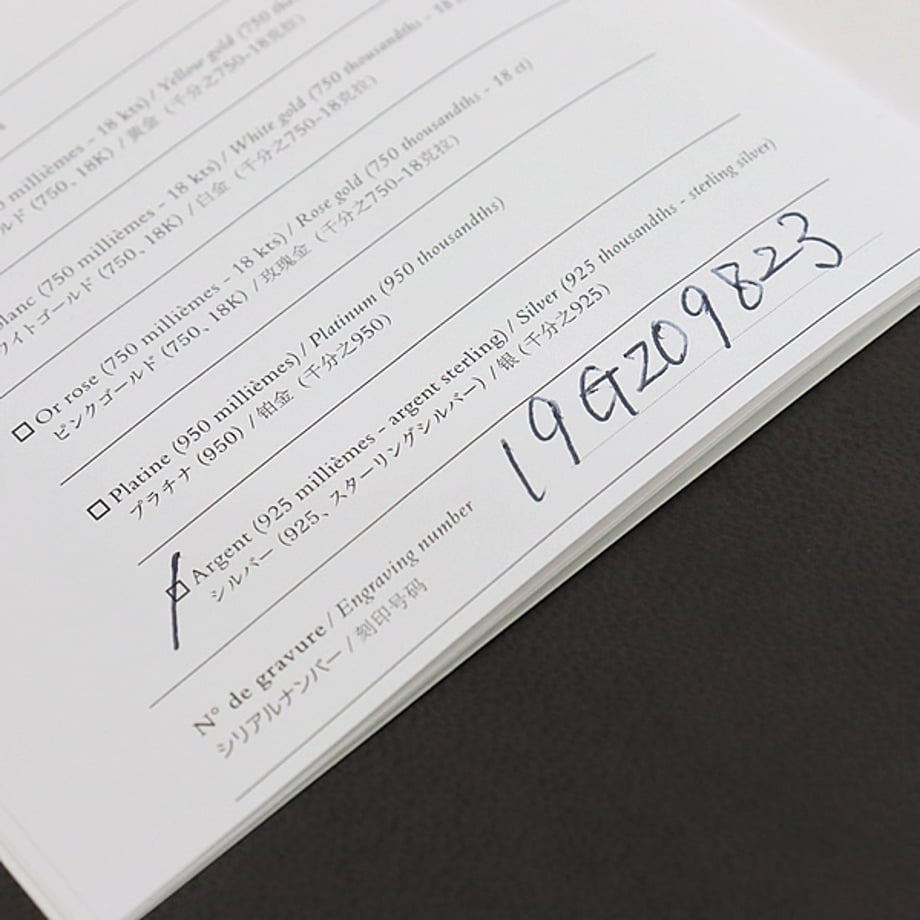 millièmes - 18 kts) / Yellow gold (750
ルド (750、18K) / 黄金 (千分之750-18克拉)
blanc (750 millièmes - 18 kts) / White gold (750 thousandths - 18
ワイトゴールド (750、18K) / 白金 (千分之750-18克拉)
□ Or rose (750 millièmes - 18 kts) / Rose gold (750 thousandths - 18 ct)
ピンクゴールド (750、18K) / 玫瑰金 (千分之750-18克拉)
□ Platine (950 millièmes) / Platinum (950 thousandths)
プラチナ (950) / 铂金 (千分之950)
Argent (925 millièmes - argent sterling) / Silver (925 thousandths - sterling silver)
シルバー (925、スターリングシルバー) / 银 (千分之925)
N° de gravure / Engraving number
シリアルナンバー / 刻印号码
19GZ09823